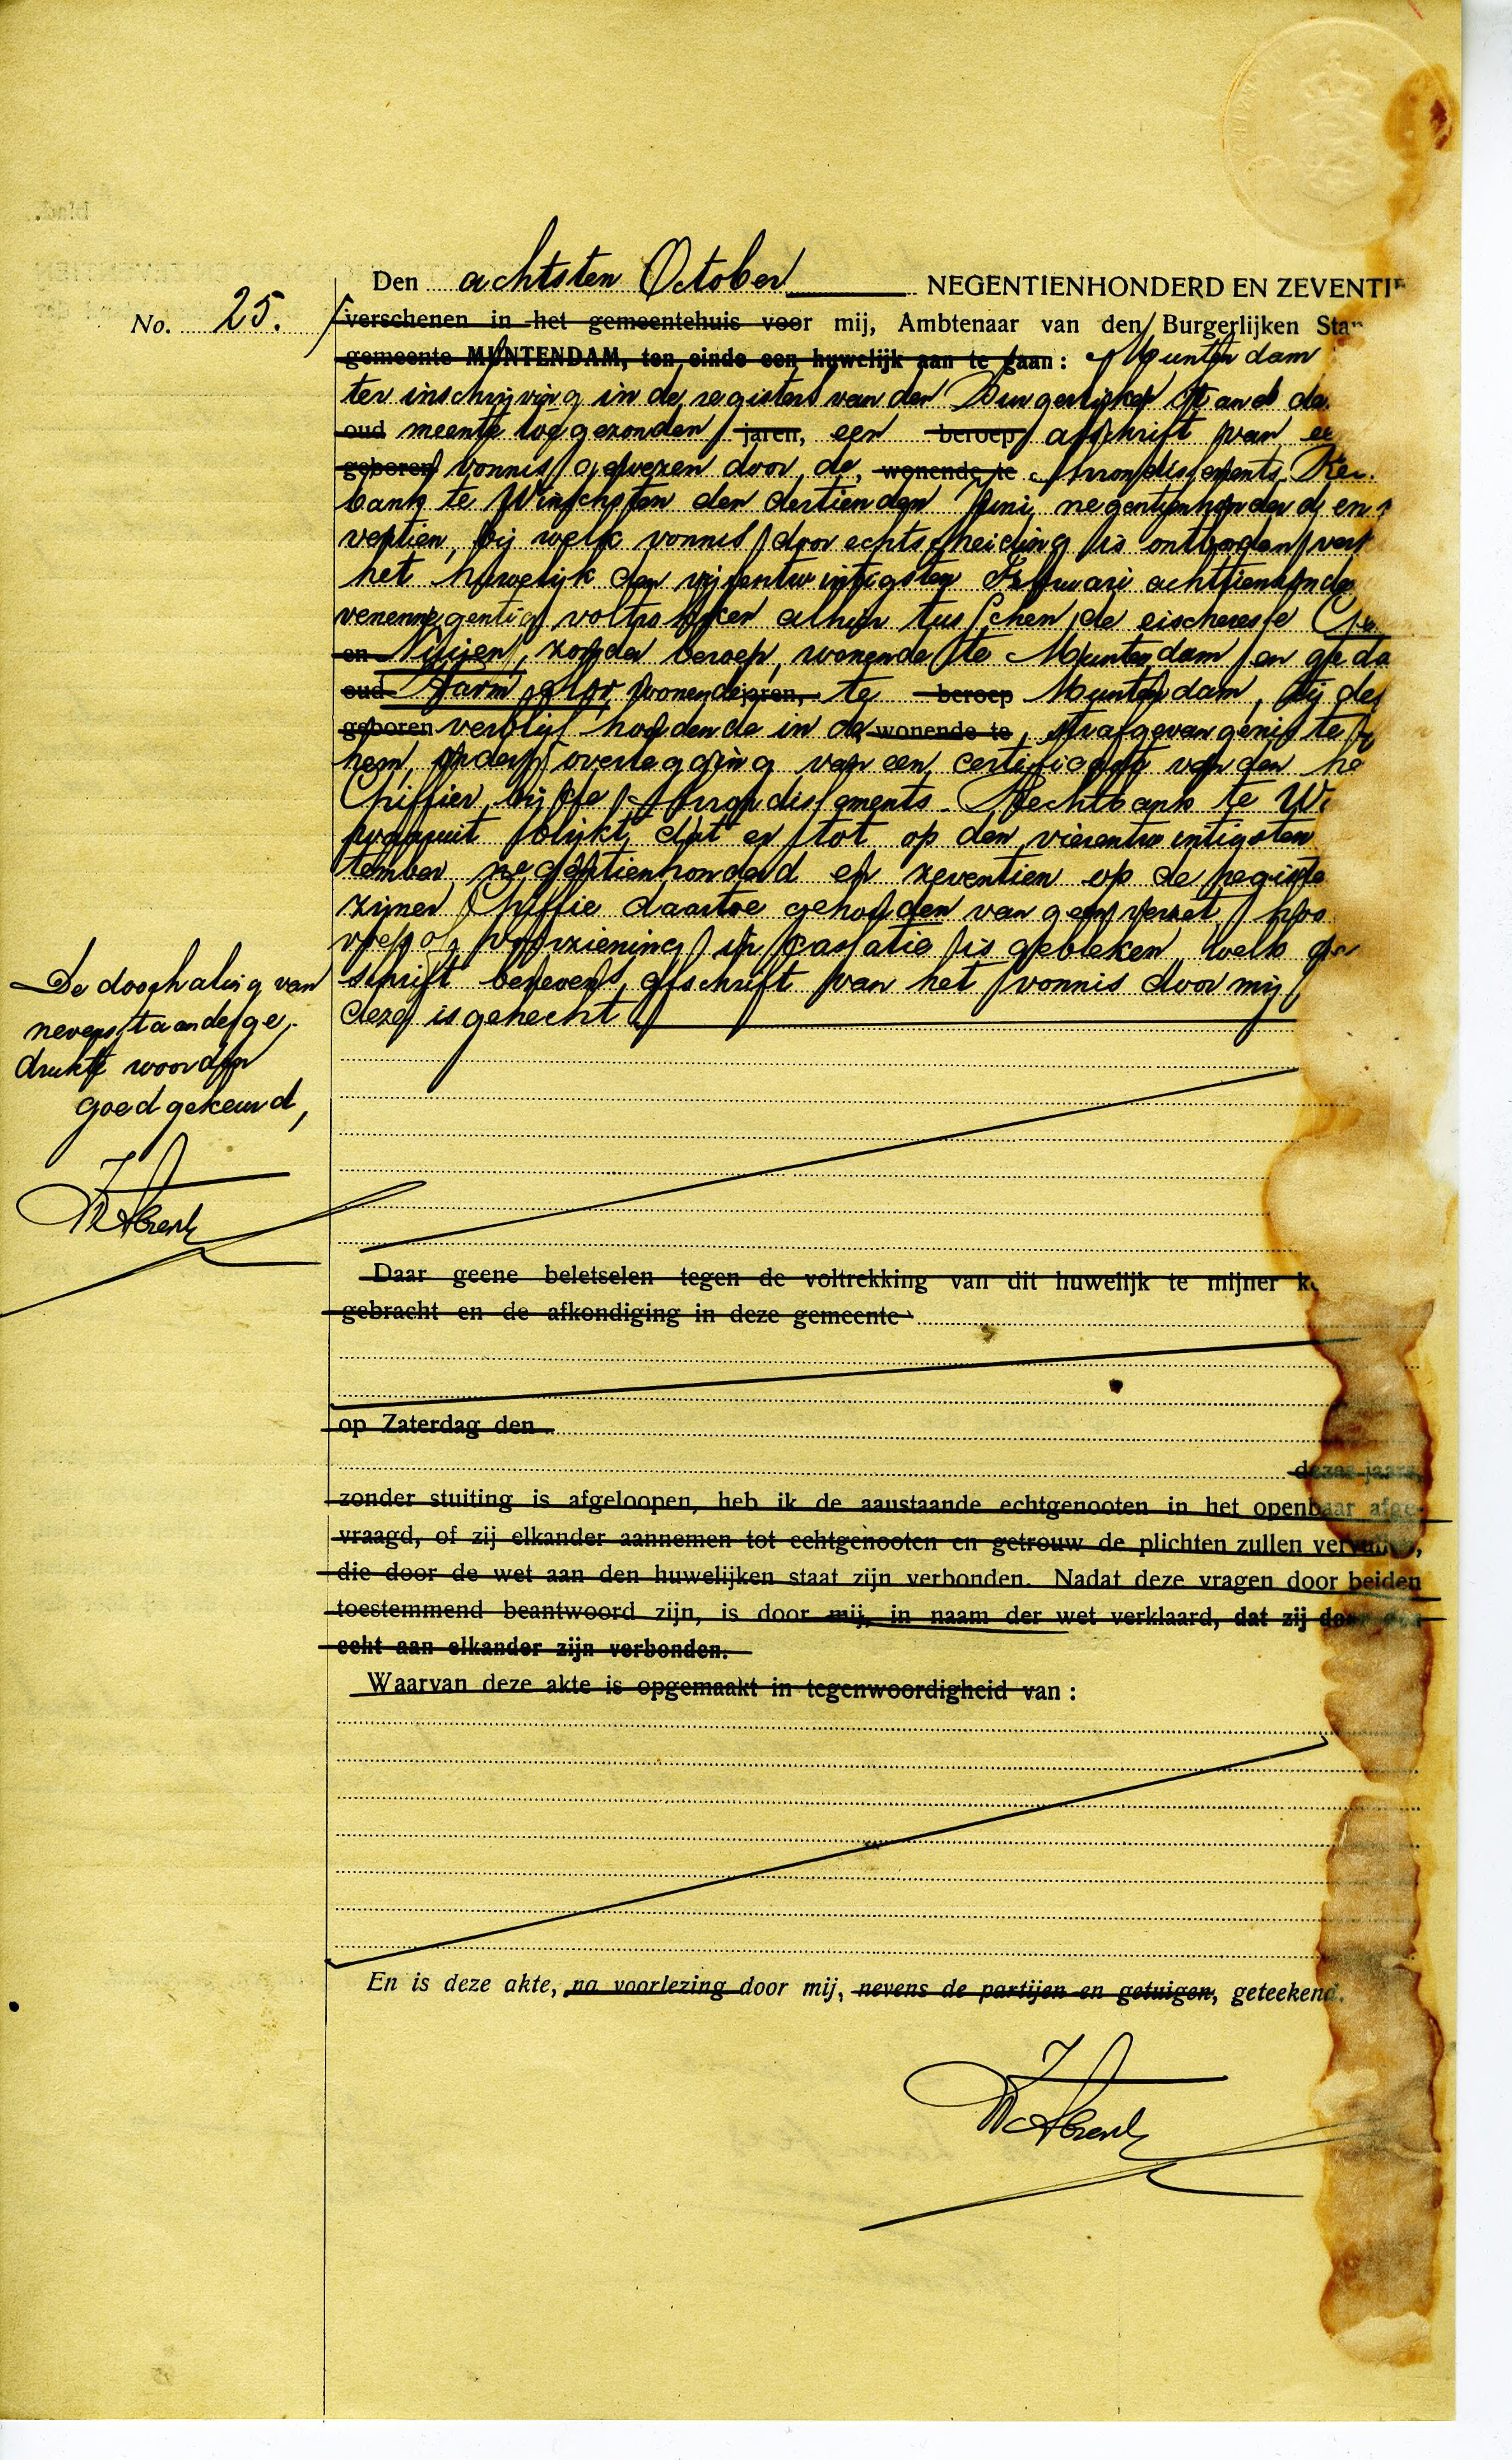 Den achtsten October NEGENTIENHONDERD EN ZEVENTI
No. 25.
verschenen in het gemeentehuis voor mij, Ambtenaar van den Burgerlijken Sta
gemeente MUNTENDAM, ten einde een huwelijk aan te gaan: Muntendam
ter inschrijving in de registers van den Burgerlijken Stand de
oud meente toegezonden jaren, een beroep afschrift van ee
geboren vonnis gewezen door de, wonende te Arrondissements Re
bank te Winschoten den dertienden Juni negentienhonderd en
ventien, bij welk vonnis door echtscheiding is ontbonden ver
het huwelijk den vijfentwintigsten Februari achttienhonde
venennegentig voltrokken alhier tusschen de eischeresse
en Nuijen, zonder beroep, wonende te Muntendam en geda
oud Harm wonende jaren, te beroep Muntendam, bij de
geboren verblijf houdende in de wonende te, strafgevangenis te
hem, onder overlegging van een certificaat van den he
Griffier bij de Arrondissements-Rechtbank te Wi
waaruit blijkt, dat er tot op den vierentwintigsten
tember negentienhonderd en zeventien op de registe
zijner Griffie daartoe gehouden van geen verzet, hoo
voep of voorziening in cassatie is gebleken, welk ge
schrift benevens afschrift van het vonnis door mij
deze is gehecht.
De doorhaling van
nevenstaande ge-
drukte woorden
goedgekeurd,
Daar geene beletselen tegen de voltrekking van dit huwelijk te mijner k
gebracht en de afkondiging in deze gemeente
op Zaterdag den
dezes jaars,
zonder stuiting is afgeloopen, heb ik de aanstaande echtgenooten in het openbaar afge-
vraagd, of zij elkander aannemen tot echtgenooten en getrouw de plichten zullen vervullen,
die door de wet aan den huwelijken staat zijn verbonden. Nadat deze vragen door beiden
toestemmend beantwoord zijn, is door mij, in naam der wet verklaard, dat zij door den
echt aan elkander zijn verbonden.
Waarvan deze akte is opgemaakt in tegenwoordigheid van:
En is deze akte, na voorlezing door mij, nevens de partijen en getuigen, geteekend.